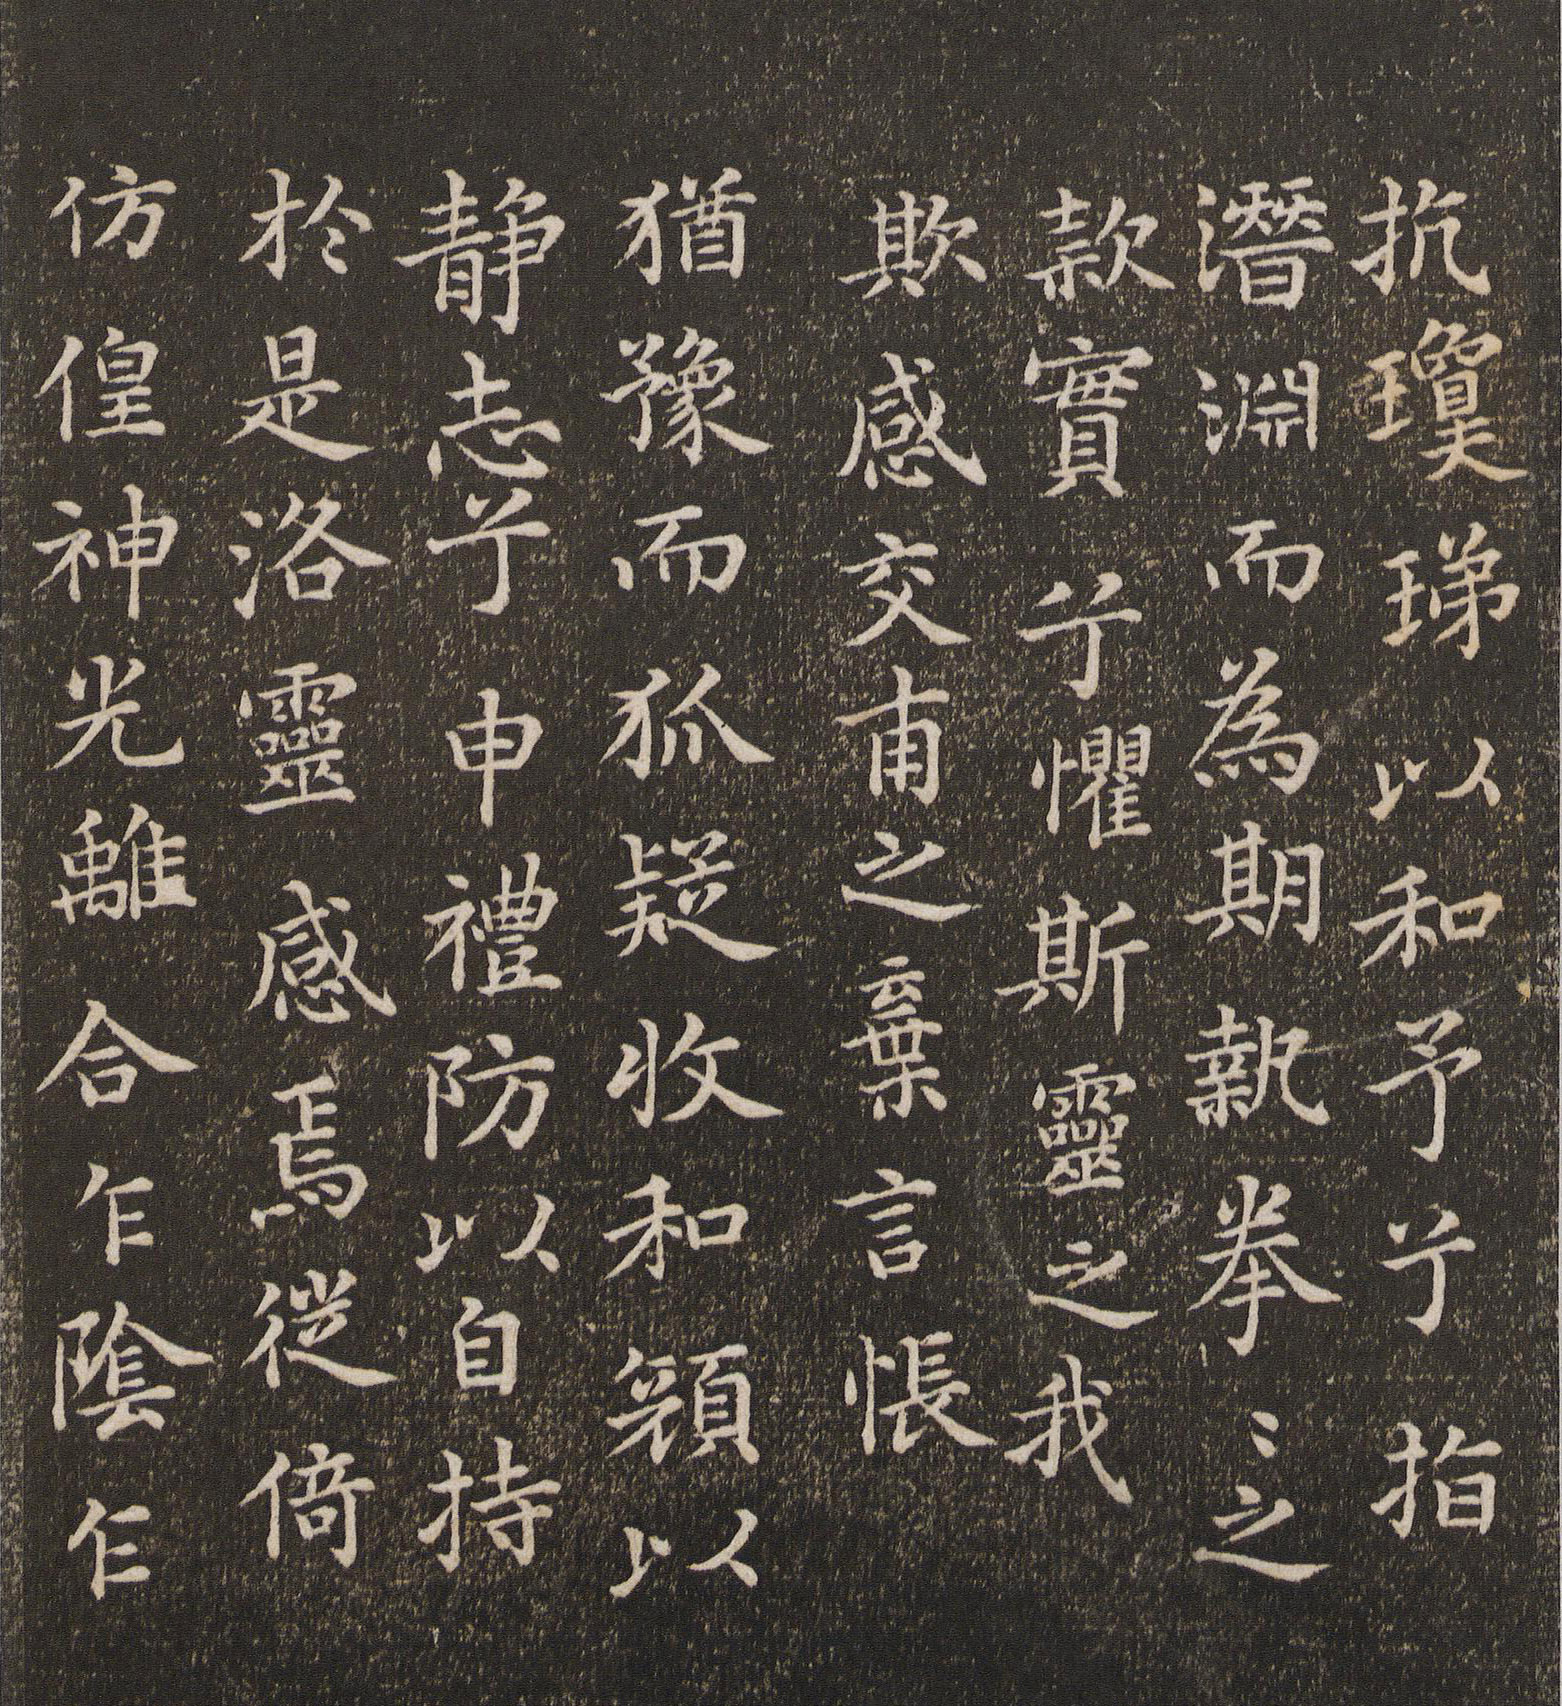 抗瓊珶以和予兮指
潛淵而為期執拳〻之
款實兮懼斯靈之我
欺感交甫之棄言悵
猶豫而狐疑收和顏以
静志兮申禮防以自持
於是洛靈感焉從倚
仿偟神光離合乍陰乍